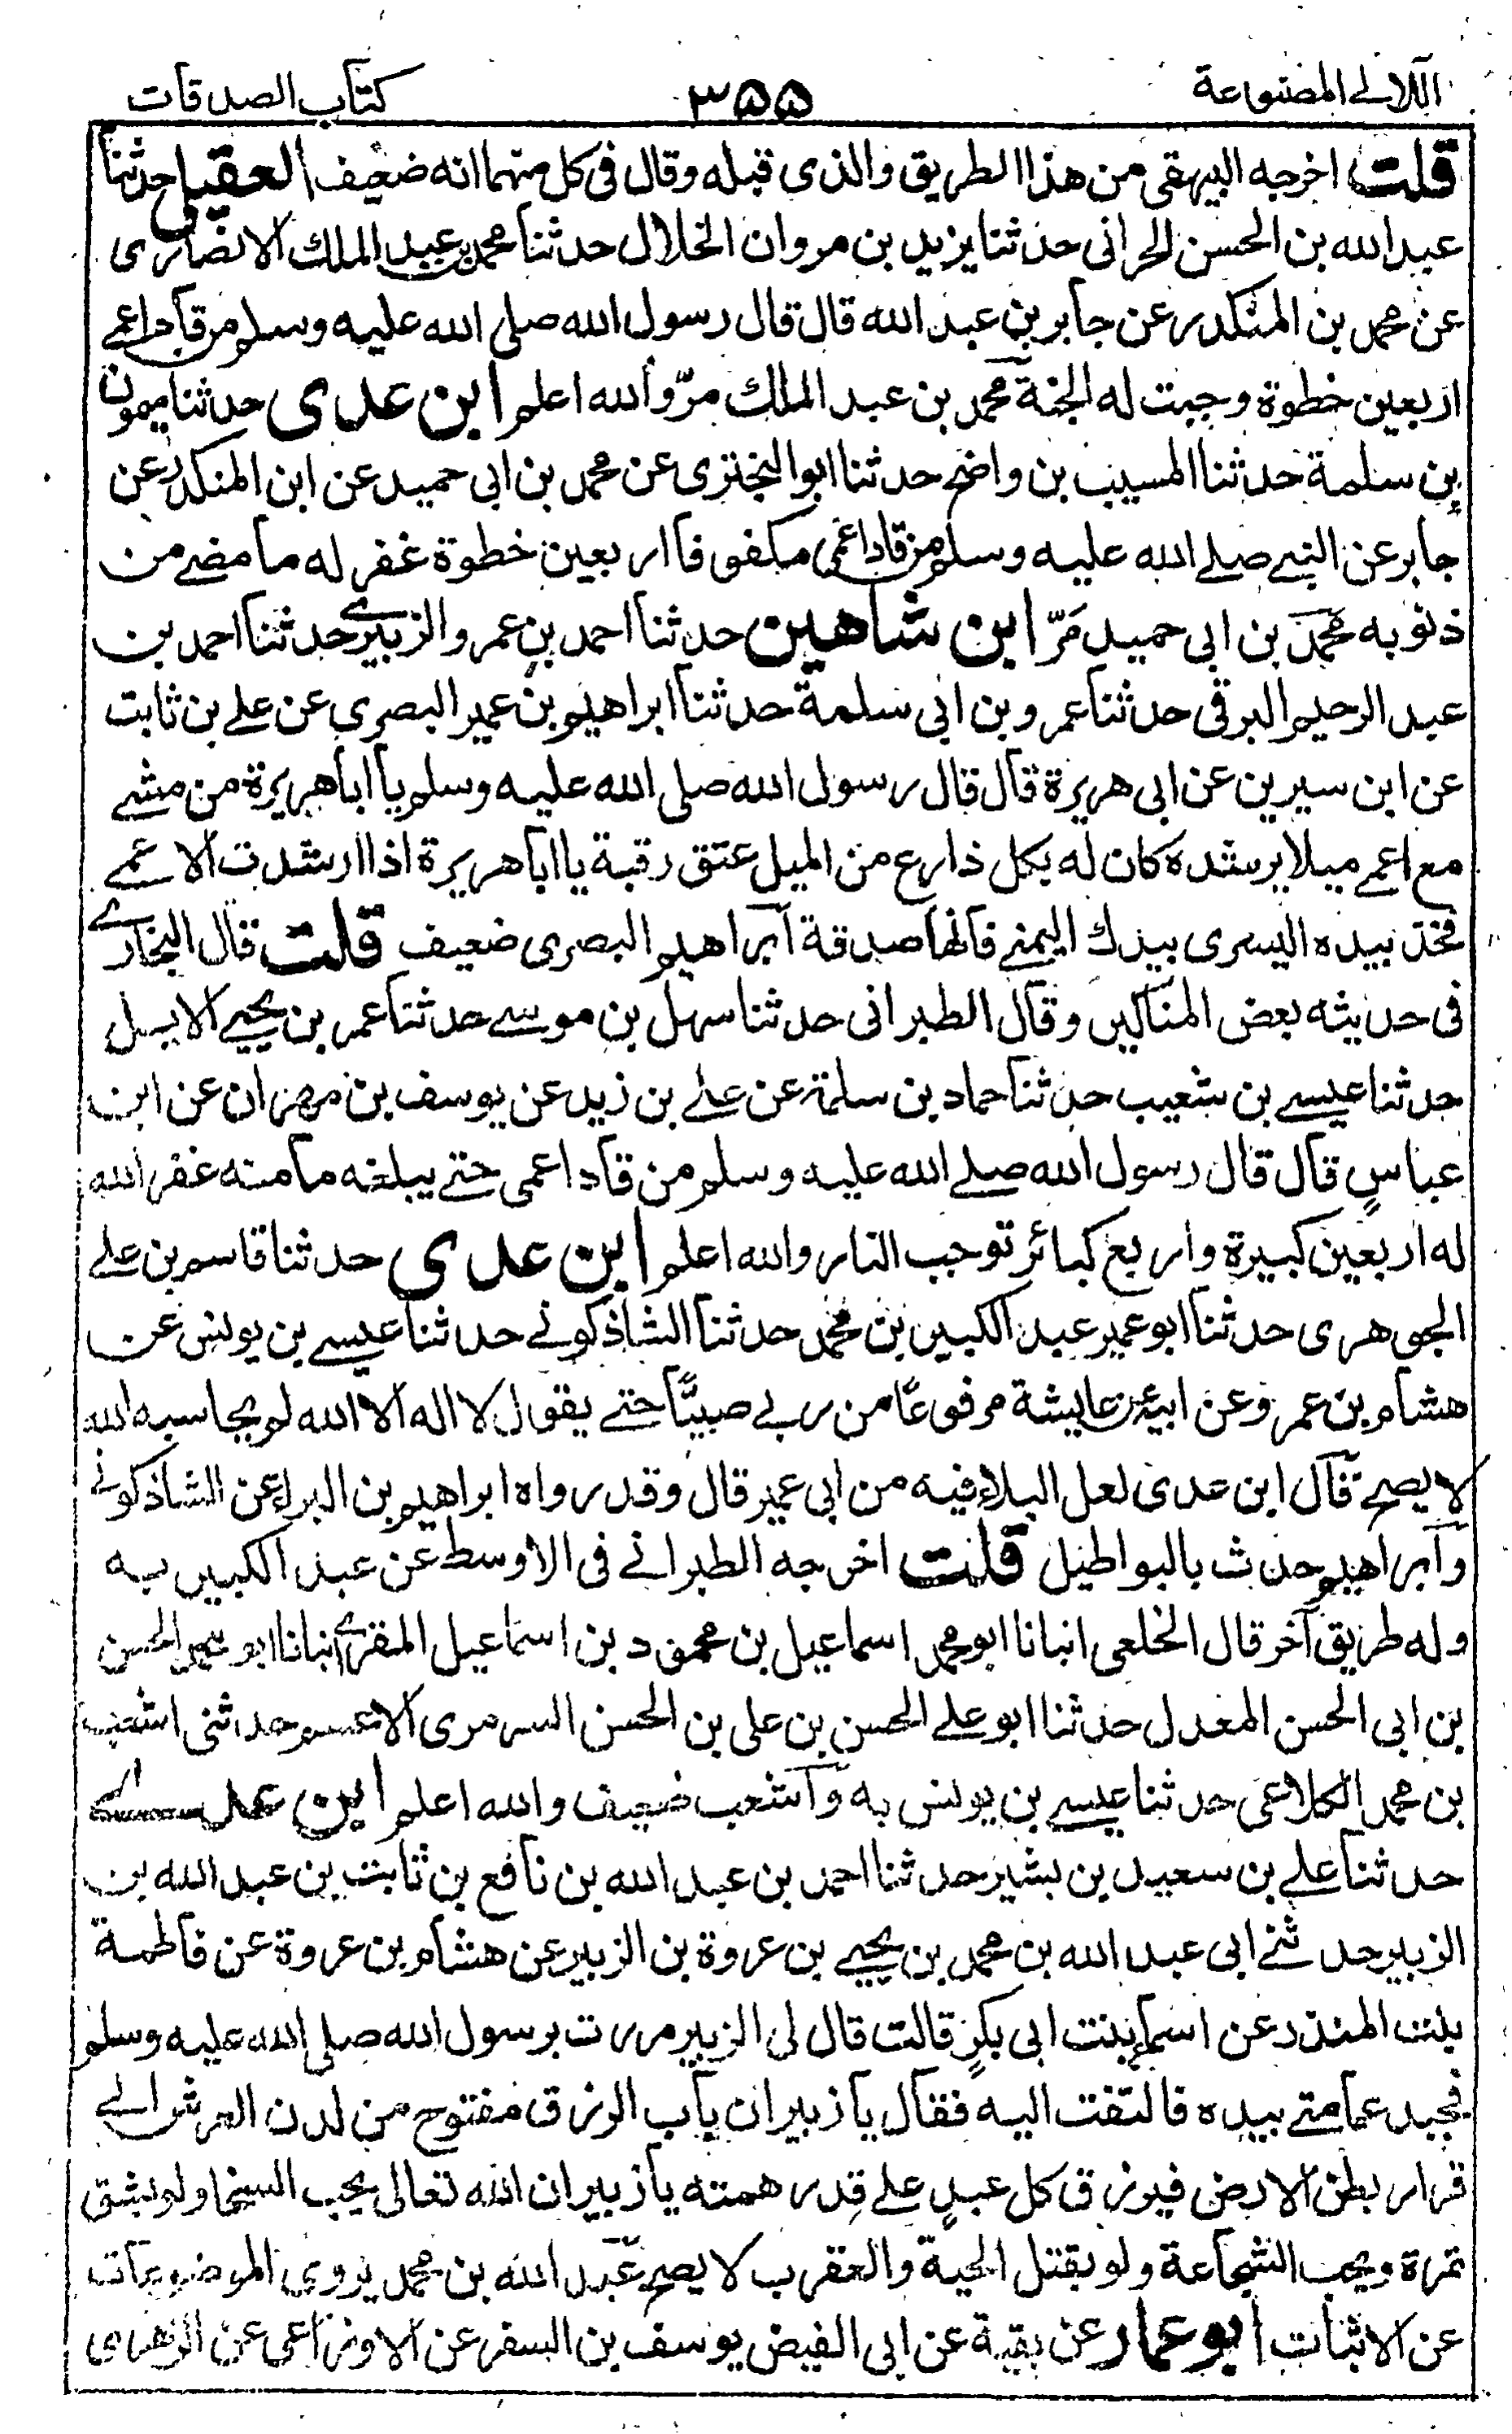 اللآلے المصنوعة ۳۵۵ كتاب الصدقات
قلت اخرجه البيهقى من هذا الطريق والذى قبله وقال فى كل منهما انه ضعيف العقيلى حدثنا
عبد الله بن الحسن الحرانى حدثنا يزيد بن مروان الخلال حدثنا محمد بن عبد الملك الانصارى
عن محمد بن المنكدر عن جابر بن عبد الله قال قال رسول الله صلى الله عليه وسلم من قاد اعمى
اربعين خطوة وجبت له الجنة محمد بن عبد الملك مرّ والله اعلم ابن عدى حدثنا ميمون
بن سلمة حدثنا المسيب بن واضح حدثنا ابو البخترى عن محمد بن ابى حميد عن ابن المنكدر عن
جابر عن النبے صلے الله عليه وسلم من قاد اعمى مكفوفا اربعين خطوة غفر له ما مضے من
ذنوبه محمد بن ابى حميد مَرّ ابن شاهين حدثنا احمد بن عمرو الزبيرے حدثنا احمد بن
عبد الرحيم البرقى حدثنا عمرو بن ابى سلمة حدثنا ابراهيم بن عمير البصرى عن علے بن ثابت
عن ابن سيرين عن ابى هريرة قال قال رسول الله صلى الله عليه وسلم يا ابا هريرة من مشے
مع اعمے ميلا يرشده كان له بكل ذارع من الميل عتق رقبة يا ابا هريرة اذا ارشدت الاعمے
فخذ بيده اليسرى بيدك اليمنے فانها صدقة ابراهيم البصرى ضعيف قلت قال البخارے
فى حديثه بعض المناكير وقال الطبرانى حدثنا سهل بن موسے حدثنا عمر بن يحيے الابلى
حدثنا عيسے بن شعيب حدثنا حماد بن سلمة عن علے بن زيد عن يوسف بن مهران عن ابن
عباسٍ قال قال رسول الله صلے الله عليه وسلم من قاد اعمى حتے يبلغه مامنه غفر الله
له اربعين كبيرة واربع كبائر توجب النار والله اعلم ابن عدى حدثنا قاسم بن علے
الجوهرى حدثنا ابو عمير عبد الكبير بن محمد حدثنا الشاذكونے حدثنا عيسے بن يونس عن
هشام بن عمرو عن ابيه عن عايشة مرفوعًا من ربے صبيًّا حتے يقول لا اله الا الله لم يحاسبه الله
لا يصح قال ابن عدى لعل البلاء فيه من ابى عمير قال وقد رواه ابراهيم بن البراء عن الشاذكونے
وابراهيم حدث بالبواطيل قلت اخرجه الطبرانے فى الاوسط عن عبد الكبير به
وله طريق آخر قال الخلعى انبانا ابو محمد اسماعيل بن محمود بن اسماعيل المقرے انبانا ابو محمد الحسن
بن ابى الحسن المعدل حدثنا ابو علے الحسن بن على بن الحسن السرمرى الاعسم حدثنى اشعب
بن محمد الكلاعى حدثنا عيسے بن يونس به واشعب ضعيف والله اعلم ابن عدے
حدثنا علے بن سعيد بن بشير حدثنا احمد بن عبد الله بن نافع بن ثابت بن عبد الله بن
الزبير حدثنے ابى عبد الله بن محمد بن يحيے بن عروة بن الزبير عن هشام بن عروة عن فاطمة
بنت المنذر عن اسماء بنت ابى بكرٍ قالت قال لى الزبير مررت برسول الله صلى الله عليه وسلم
فجبد عمامتے بيده فالتفت اليه فقال يا زبير ان باب الرزق مفتوح من لدن العرش الے
قرار بطن الارض فيرزق كل عبدٍ علے قِدر همته يا زبير ان الله تعالى يحب السخا ولو بشق
تمرة ويحب الشجاعة ولو بقتل الحية والعقرب لا يصح عبد الله بن محمد يروى الموضوعات
عن الاثبات ابو عمار عن بقية عن ابى الفيض يوسف بن السفر عن الاوزاعى عن الزهرى